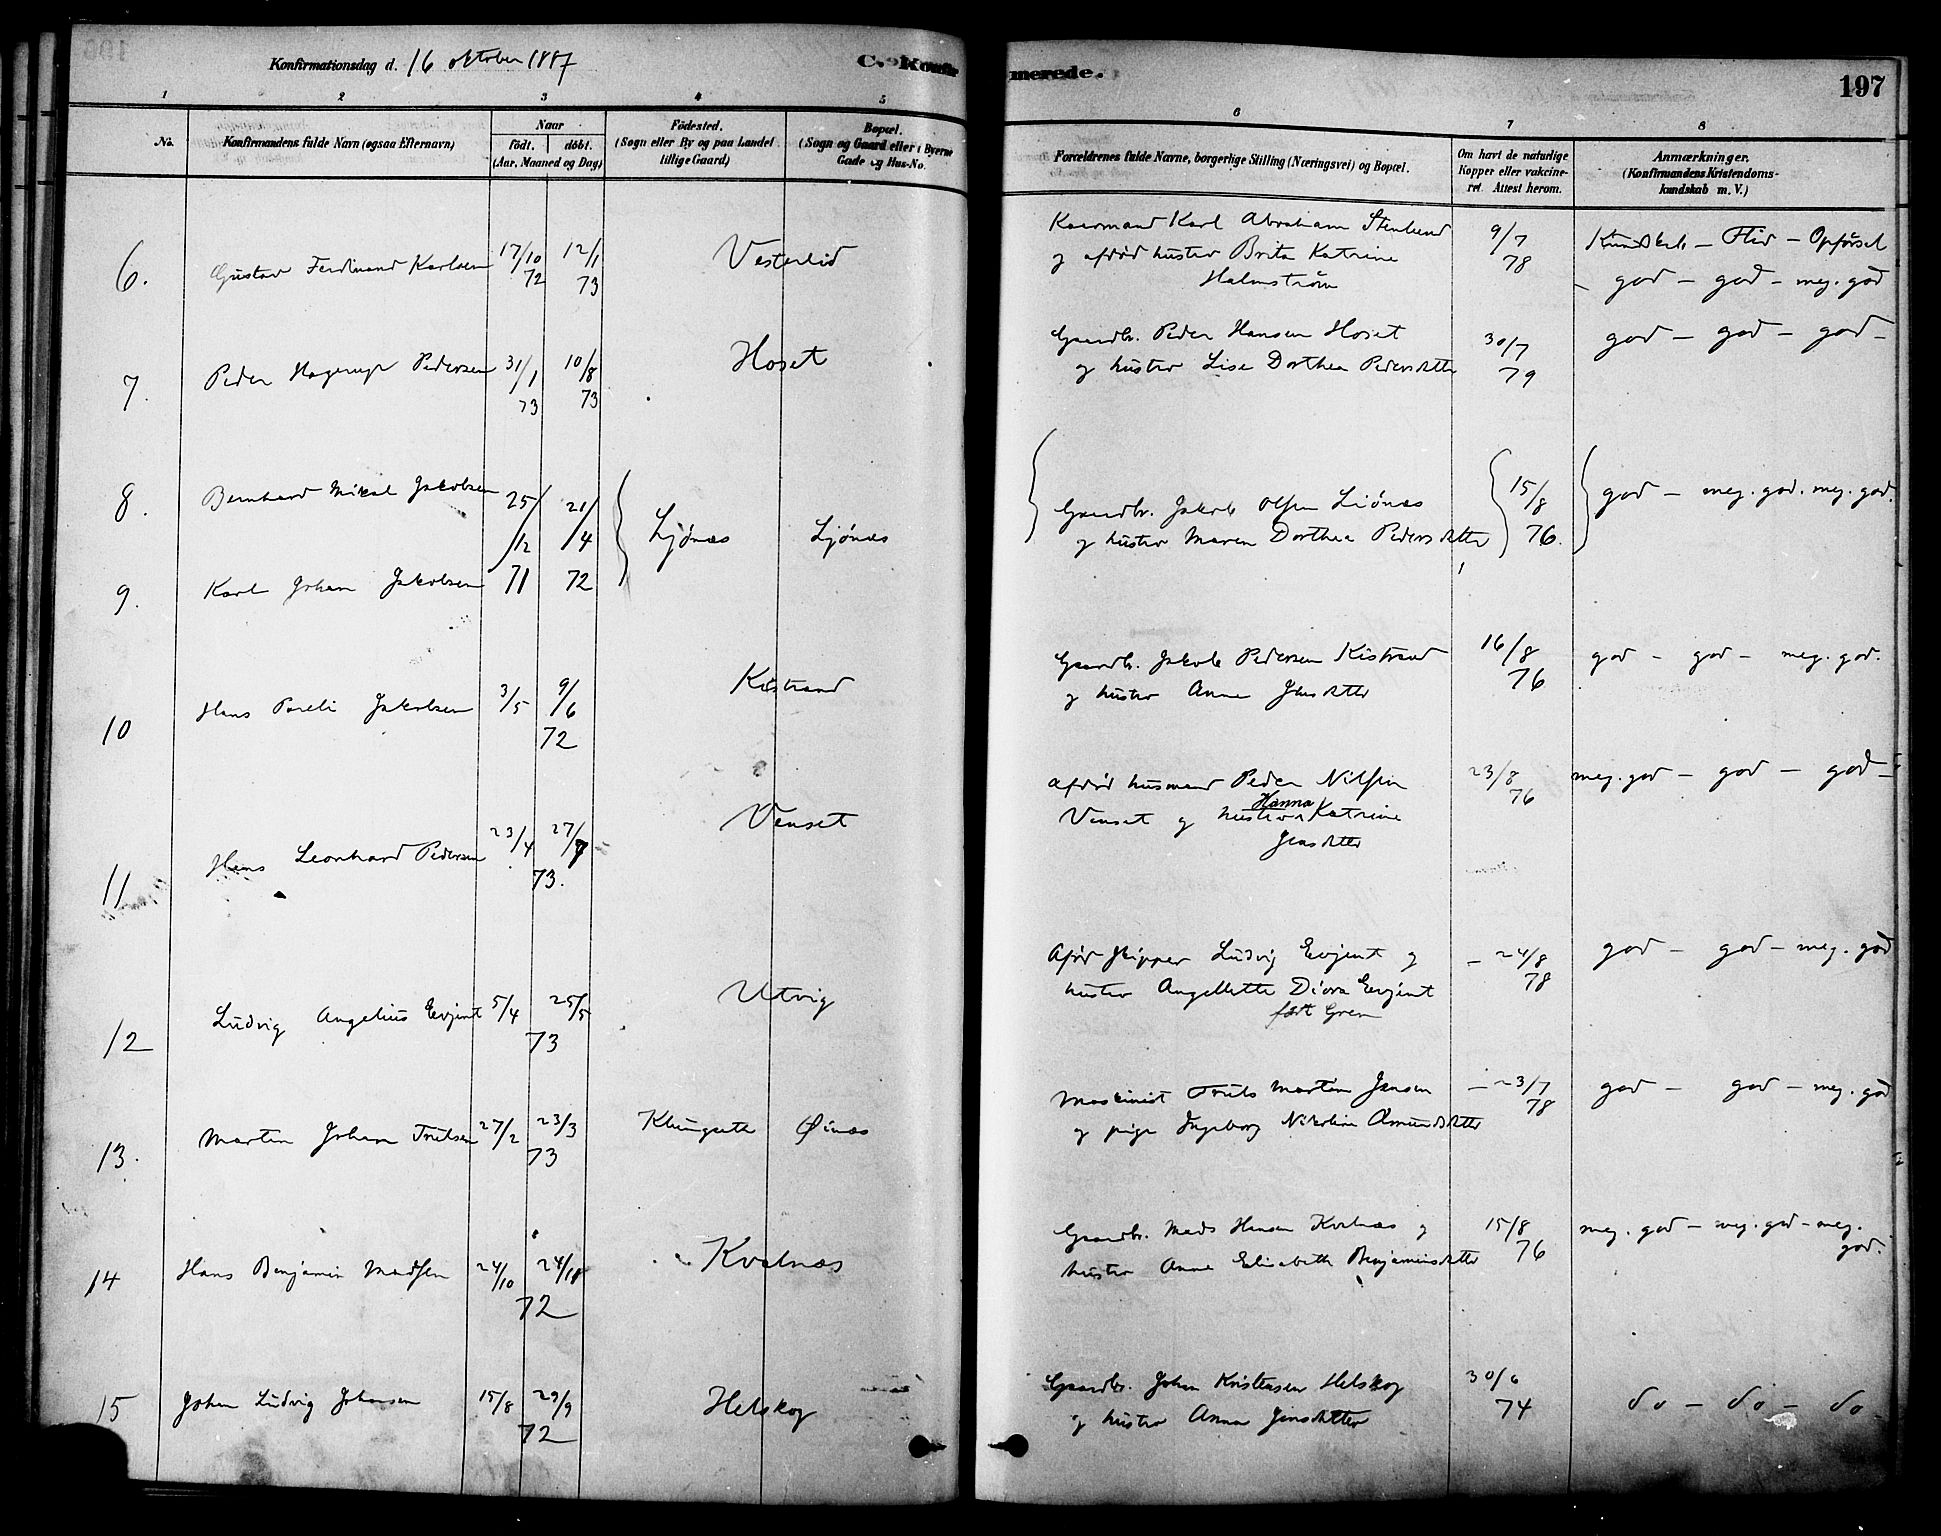 Konfirmationsdag d. 16 oktober 1887
C. Konfirmerede.
197
1 2 3 4 5 6 7 8
No.
Konfirmandens fulde Navn (ogsaa Efternavn)
Naar
födt. döbt.
(Aar, Maaned og Dag)
Födested.
(Sogn eller By og paa Landet
tillige Gaard)
Bopæl.
(Sogn og Gaard eller i Byerne
Gade og Hus-No.
Forældrenes fulde Navne, borgerlige Stilling (Næringsvei) og Bopæl.
Om havt de naturlige
Kopper eller vakcine-
ret. Attest herom.
Anmærkninger.
(Konfirmandens Kristendoms-
kundskab m. V.)
6. Gustav Ferdinand Karlsen 17/10 72 12/1 73 Vesterlid
Karl Abraham Stenlund
og afdød hustro Brita Katrine
Halmstrøm
9/7 78
Kundskab – Flid – Opförsel
– god – god – meg. god
7. Peder Hagerup Pedersen 31/1 73 10/8 73 Hoset
Gaardbr. Peder Hansen Hoset
og hustro Lise Dorthea Pedersdatter
30/7 79
god – god – god –
8. Bernhard Mikal Jakobsen
25/12 71 21/4 72 Ljønæs Ljønæs
9. Karl Johan Jakobsen
Gaardbr. Jakob Olsen Liönæs
og hustro Maren Dorthea Pedersdatter
15/8 76.
god – meg. god. meg. god.
10 Hans Pareli Jakobsen 3/5 9/6 72 Kistrand
Gaardbr. Jakob Pedersen Kistrand
og hustro Anne Jensdatter
16/8 76
god – god – meg. god.
11 Hans Leonhard Pedersen 23/4 27/7 73. Venset
afdød husmand Peder Nilsen
Venset og hustro Hanna Katrine
Jensdatter
23/8 76
meg. god – god – god –
12 Ludvig Angelius Evjent 5/4 25/5 73 Utvig
Afdød Skipper Ludvig Evjent og
hustro Angellette Diora Evjent
født Gren
– 24/8 78
god – god – meg. god
13. Martin Johan Trulsen 27/2 23/3 73 Klungsete Øinæs
Maskinist Truls Martin Jensen
og pige Ingeborg Nikoline Amundsdatter
– 23/7 78
god – god – meg. god
14 Hans Benjamin Madsen 24/10 24/11 72 Kvalnæs
Gaardbr. Mads Hansen Kvalnæs og
hustro Anne Elisabeth Benjaminsdatter
15/8 76
meg. god – meg. god – meg.
god.
15 Johan Ludvig Johansen 15/8 29/9 72 Helskog
Gaardbr. Johan Kristensen Helskog
og hustro Anna Jensdatter
30/6 74
do – do – do